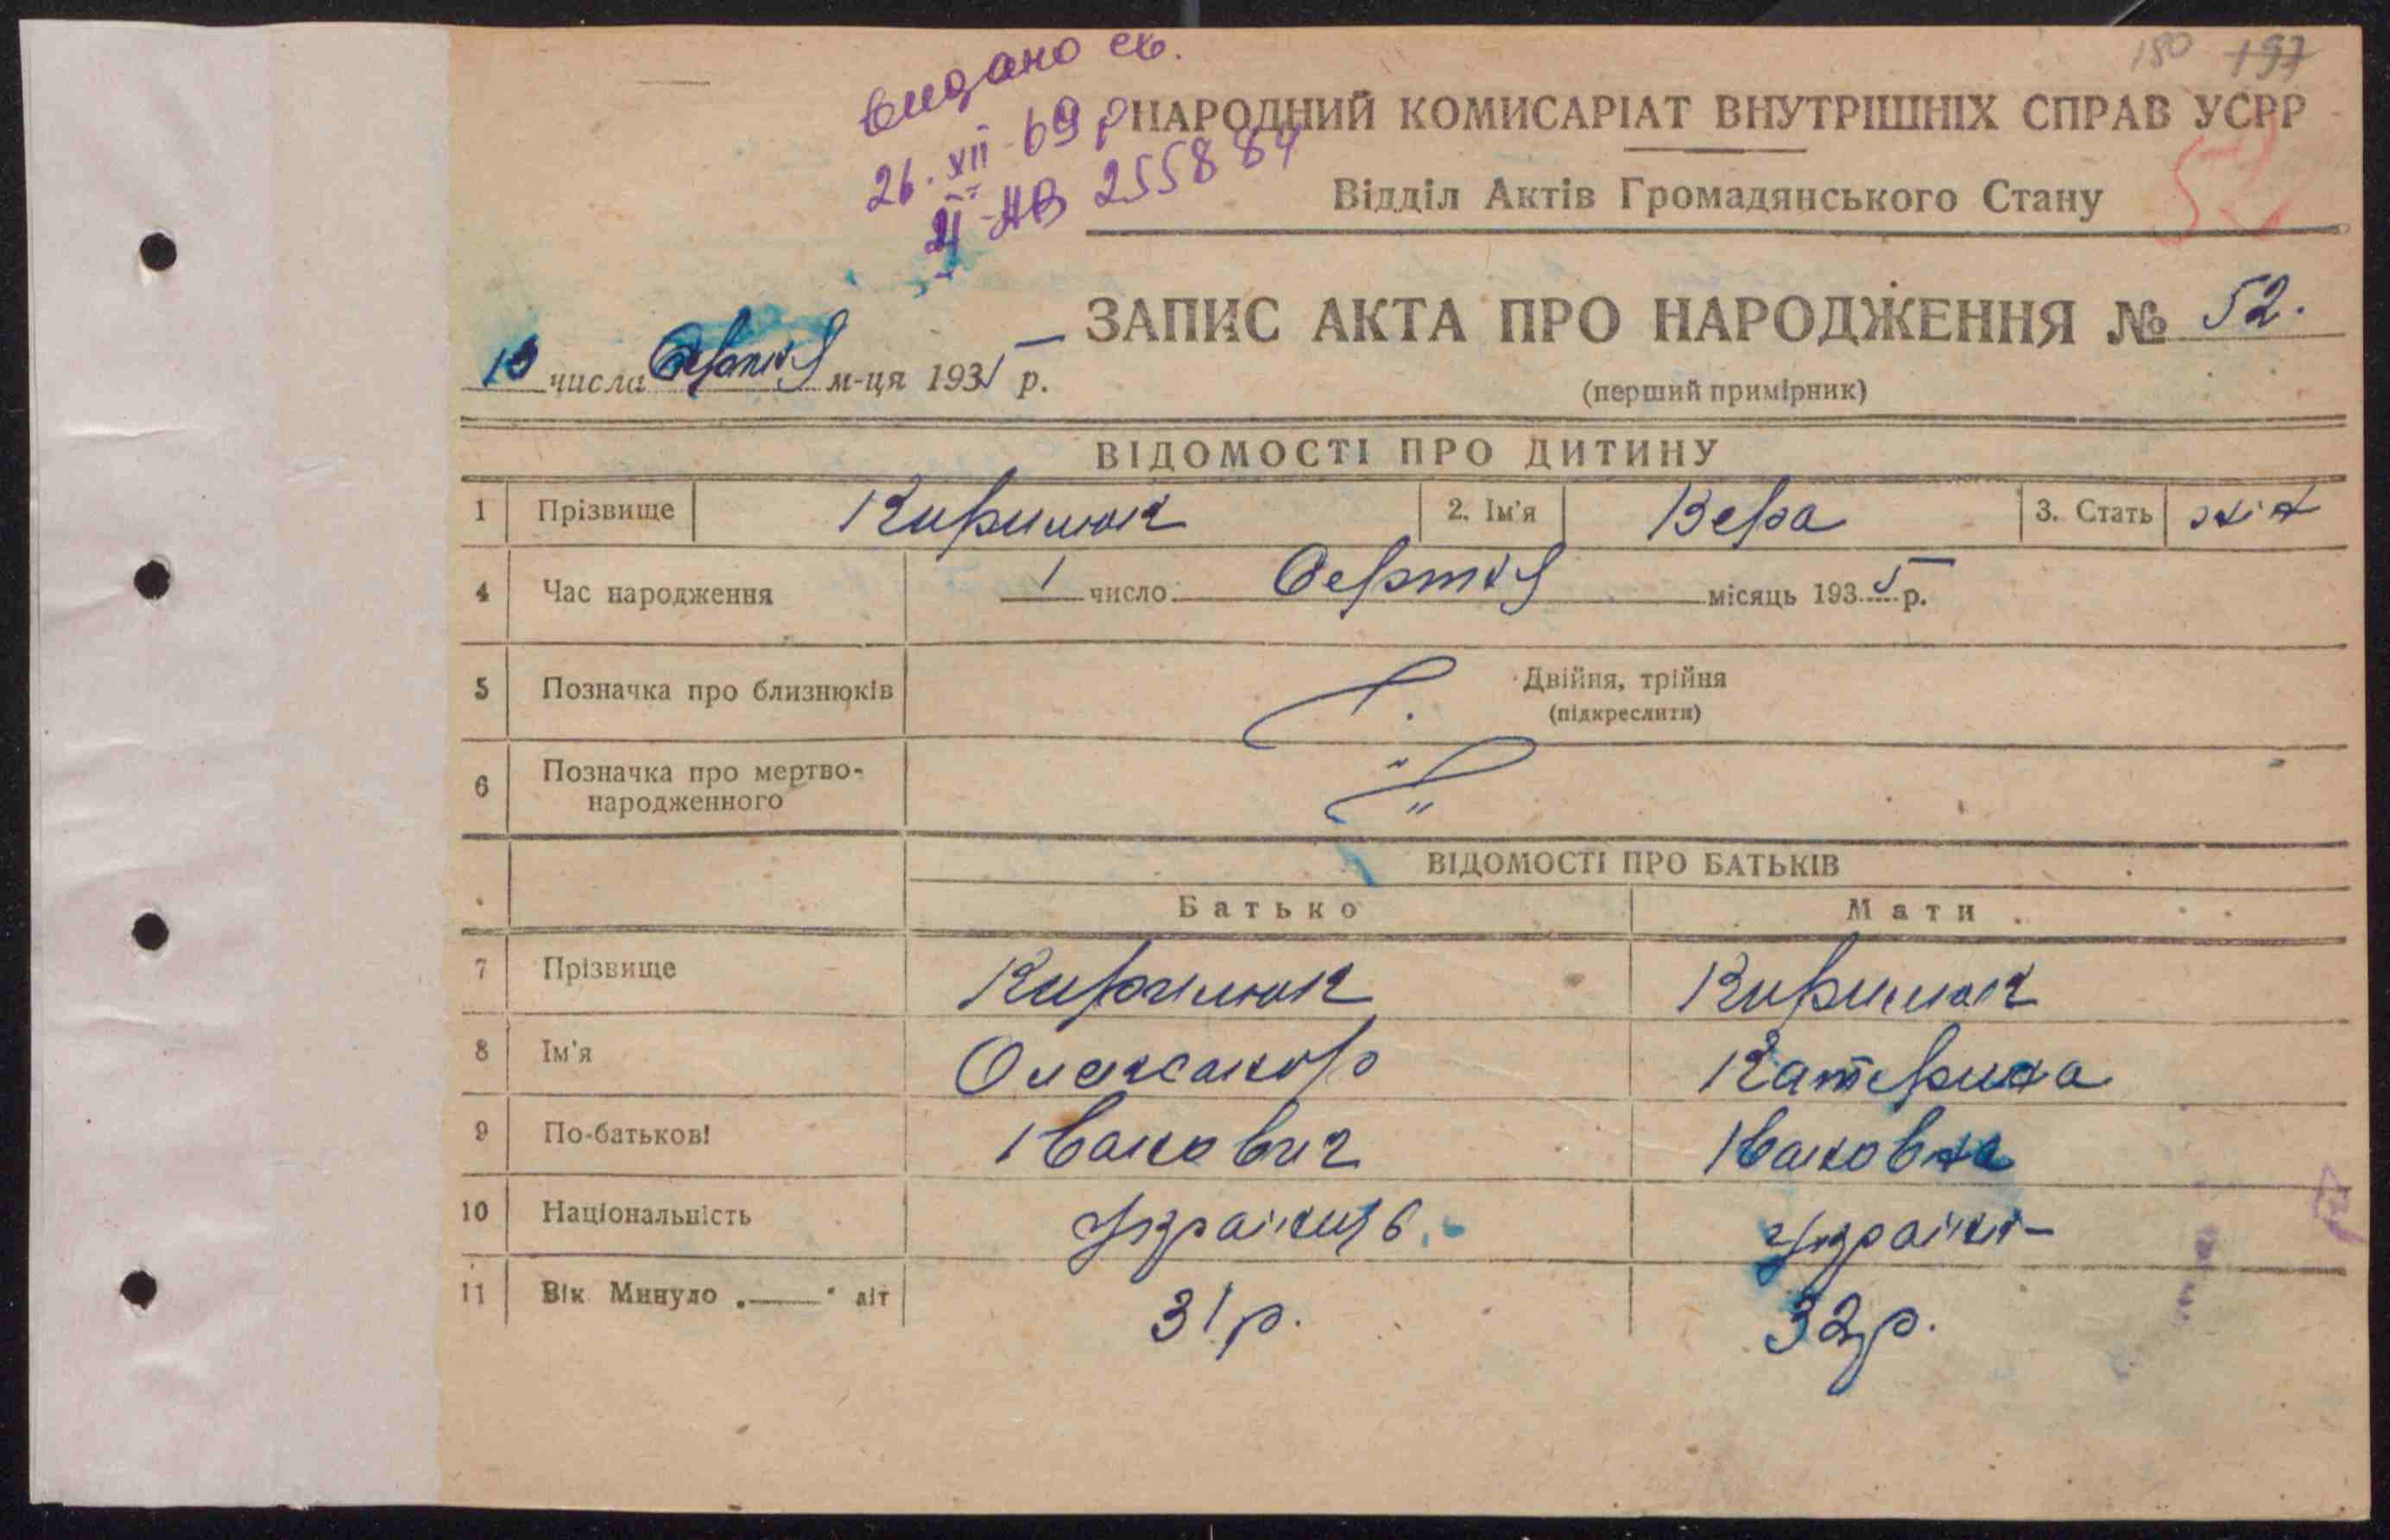 180 197
видано св.
26.XII-69 р
II-НВ 255884
НАРОДНИЙ КОМИСАРІАТ ВНУТРІШНІХ СПРАВ УСРР
Відділ Актів Громадянського Стану
52
ЗАПИС АКТА ПРО НАРОДЖЕННЯ № 52.
(перший примірник)
числа Серпня м-ця 1935 р.
ВІДОМОСТІ ПРО ДИТИНУ
1 Прізвище Кирилюк 2. Ім'я Вера 3. Стать жін
4 Час народження 1 число Серпня місяць 1935 р.
5 Позначка про близнюків Двійня, трійня
(підкреслити)
6 Позначка про мертво-
народженного
ВІДОМОСТІ ПРО БАТЬКІВ
Батько Мати
7 Прізвище Кирилюк Кирилюк
8 Ім'я Олександр Катерина
9 По-батькові Іванович Івановна
10 Національність Українець Україн-
11 Вік Минуло „——" літ 31р. 32р.